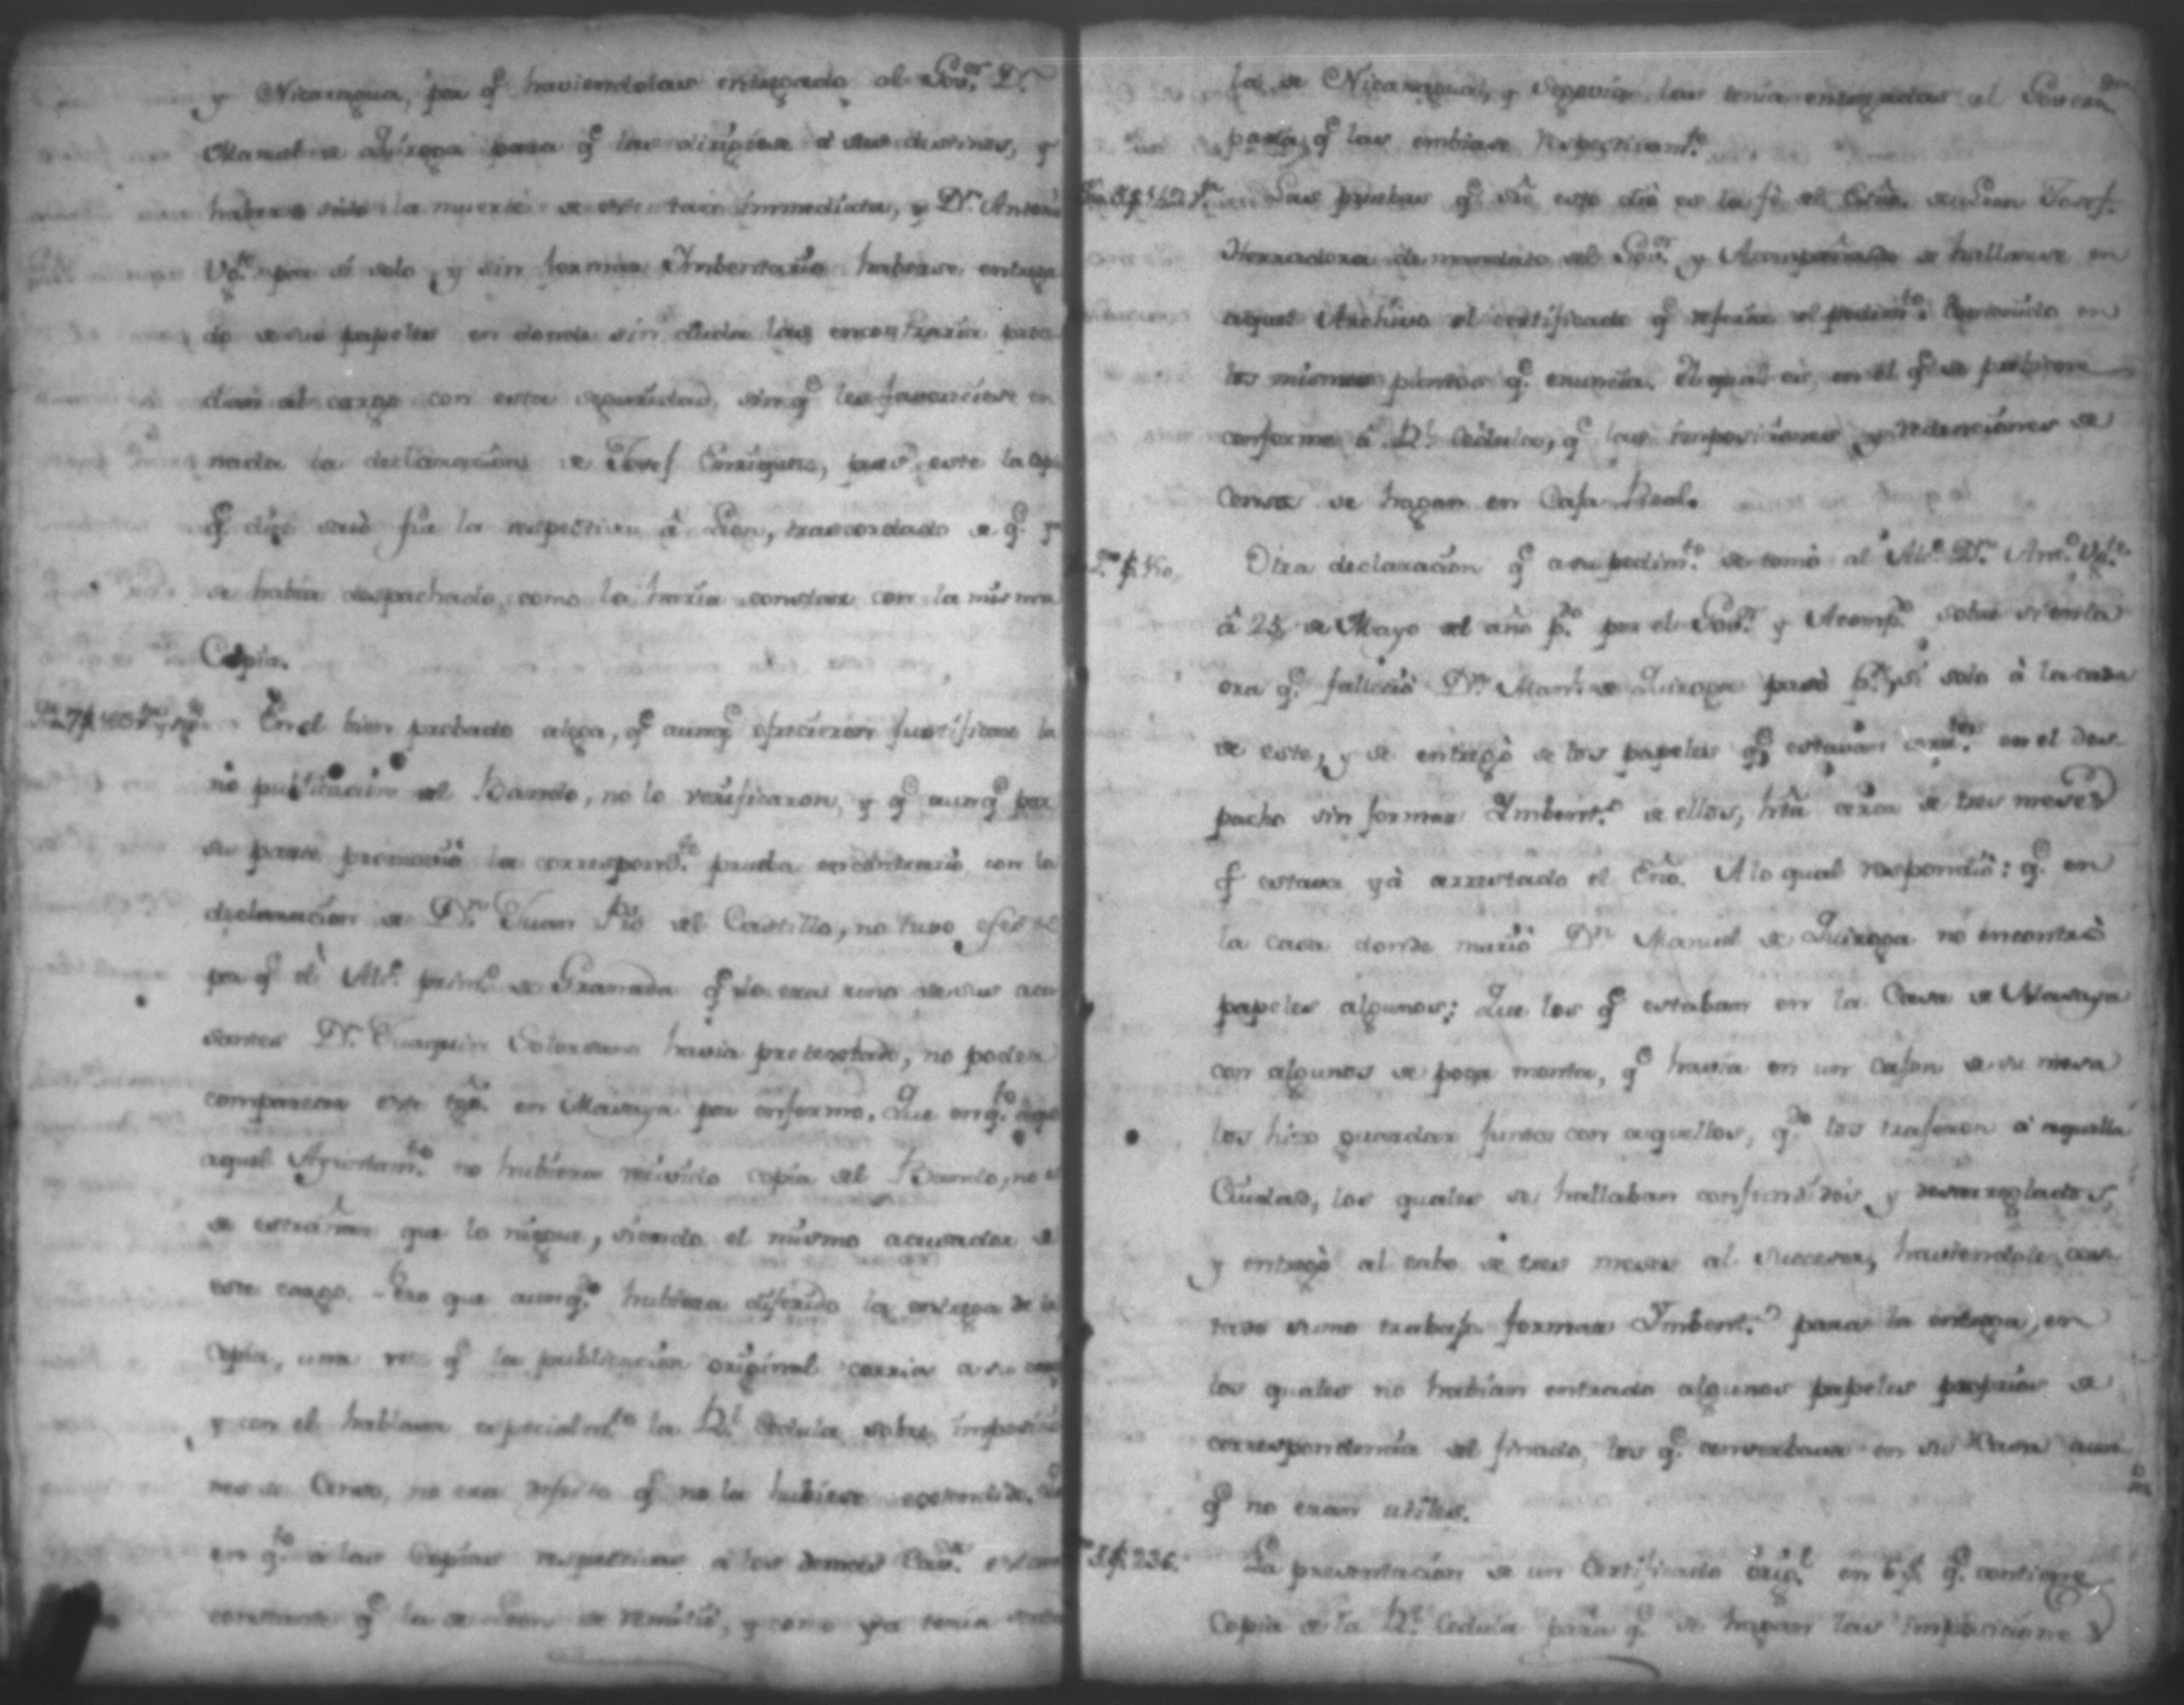 y Nicaragua, por q.^e haviendolas entregado al Gov.^or D.^n
Manuel de Quiroga para q.^e las dirigiese á sus destinos, y
haber sido la muerte de este tan immediata, y D.^n Antonio
por sí solo, y sin formar Imbentario haberse entrega
do de sus papeles en donde sin duda las encontraria
al cargo con esta seguridad, sin q.^e les favoreciese en
nada la declaracion de Josef Enriquez, pues este la copia
q.^e dize sacò fue la respectiva â Leon, trascordado de q.^e ya
se habia despachado, como la haria constar con la misma
Copia.
En el bien probado alega, q.^e aunq.^e ofrecieron justificar la
no publicacion del Bando, no lo verificaron, y q.^e aunq.^e por
su parte promovió la correspond.^te prueba en contrario con la
declaracion de D.^n Juan del Castillo, no tuvo efecto
por q.^e el Alc.^e prim.^o de Granada q.^e lo era uno de sus acu
santes D.^n Juaquin Solorzano havia pretextado, no poder
comparecer este en Masaya por enfermo. Que en q.^to
aquel Ayuntam.^to no hubiera recivido copia del Bando, no es
de estrañar que lo niegue, siendo el mismo acusador de
este cargo. Pero que aunq.^e hubiera diferido la entrega de la
Copia, una vez q.^e la publicacion original corria a su cargo
y con el hablava especialm.^te la R.^l Cedula sobre imposicio
nes de Censos, no era defecto q.^e no la hubiese
en q.^to a las Copias respectivas a los demas
constante q.^e la de Leon se remitió, y como ya tenia
la de Nicaragua, y Segovia, las tenia entregadas al Govern.^or
para q.^e las embiase respectivam.^te
Las pruebas q.^e sre esto dió es la fè del Escño. de Leon Josef
Herradora de mandato del Gov.^or y Acompañado de hallarse en
aquel Archivo el certificado q.^e refiere el pedim.^to Contenido en
los mismos puntos q.^e enuncia. El qual es, en el q.^e se previene
conforme â R.^l Cedula, q.^e las imposiciones y redenciones de
Censos se hagan en Casa Real.
Otra declaracion q.^e a su pedim.^to se tomó al Alc.^e D.^n Ant.^o
â 25 de Mayo del año p.^o por el Gov.^or y Acomp.^do sobre si en la
ora q.^e falleció D.^n Man.^l de Quiroga pasò p.^r sí solo à la casa
de este, y se entregò de los papeles q.^e estavan en el des-
pacho sin formar Ymbent.^o de ellos, hta cerca de tres meses
q.^e estava yà arrestado el Eño. A lo qual respondiò: q.^e en
la casa donde murió D.^n Manuel de Quiroga no encontrò
papeles algunos; Que los q.^e estaban en la Casa de Masaya
con algunos de poca monta, q.^e havia en un cajon de su mesa
los hizo guardar juntos con aquellos, q.^e los trajeron â aquella
Ciudad, los quales se hallaban confundidos y desarreglados,
y entregò al cabo de tres meses al Succesor, haviendole cos-
tado sumo trabajo formar Ymbent.^o para la entrega, en
los quales no habian entrado algunos papeles propios de
correspondencia del finado, los q.^e conservaba en su Casa aun-
q.^e no eran utiles.
La presentacion de un Certificado orig.^l en 6 f.^s q.^e contiene
Copia de la R.^l Cedula para q.^e se hagan las Imposiciones